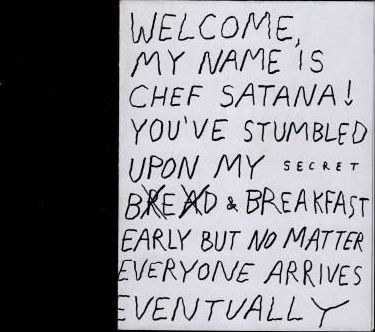 WELCOME,
MY NAME IS
CHEF SATANA!
YOU'VE STUMBLED
UPON MY SECRET
BREAD & BREAKFAST
EARLY BUT NO MATTER
EVERYONE ARRIVES
EVENTUALLY